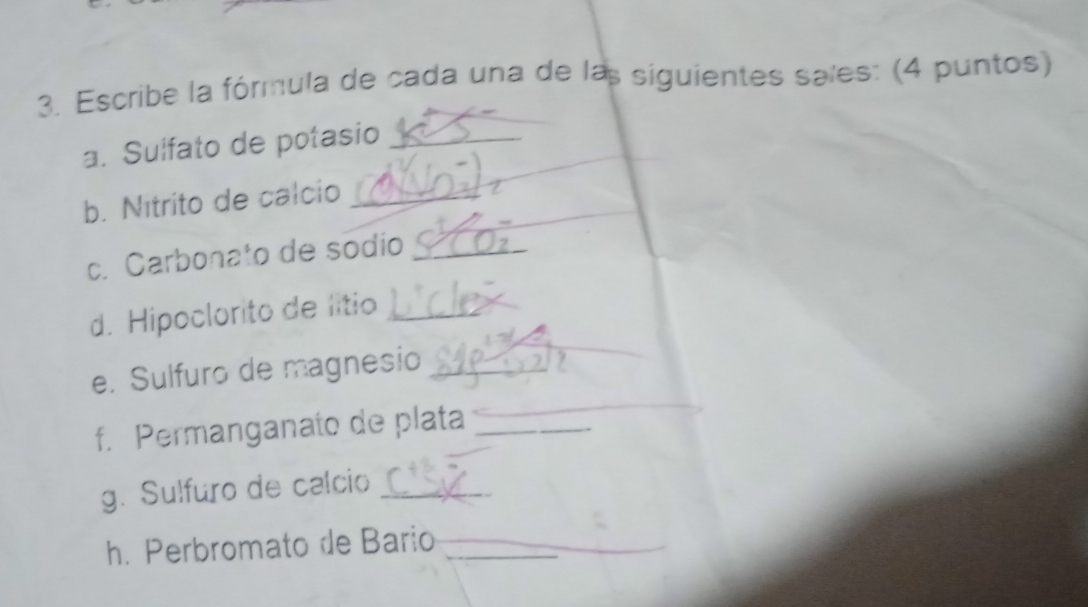 3. Escribe la fórmula de cada una de las siguientes sales: (4 puntos)
a. Sulfato de potasio
b. Nitrito de calcio
c. Carbonato de sodio
d. Hipoclorito de litio
e. Sulfuro de magnesio
f. Permanganato de plata
g. Sulfuro de calcio
h. Perbromato de Bario